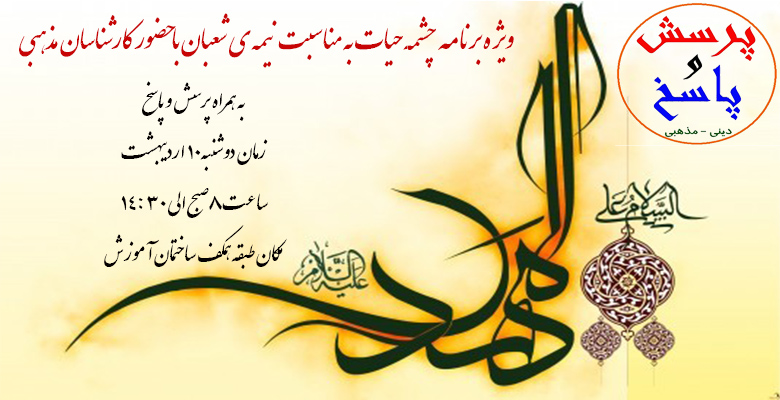 ویژه برنامه چشمه حیات به مناسبت نیمه ی شعبان با حضور کارشناسان مذهبی
به همراه پرسش و پاسخ
زمان دوشنبه ۱۰ اردیبهشت
ساعت ۸ صبح الی ۱۴:۳۰
مکان طبقه همکف ساختمان آموزش
پرسش
و
پاسخ
دینی - مذهبی
السلام علی
المهدی
علیه السلام